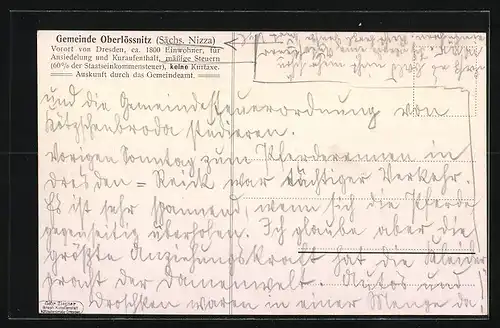 Gemeinde Oberlössnitz (Sächs. Nizza)
Vorort von Dresden, ca. 1800 Einwohner, für
Ansiedelung und Kuraufenthalt, mäßige Steuern
(60% der Staatseinkommensteuer), keine Kurtaxe.
Auskunft durch das Gemeindeamt.
und die Gemeindesteuerordnung von
Kötzschenbroda studieren.
Vorigen Sonntag zum Pferderennen in
Dresden = Reick war tüchtiger Verkehr.
Es ist sehr spannend, wenn sich die Pferde
gegenseitig überholen. Ich glaube aber die
größte Anziehungskraft hat die Kleider
pracht der Damenwelt. Autos und
Droschken waren in einer Menge da!